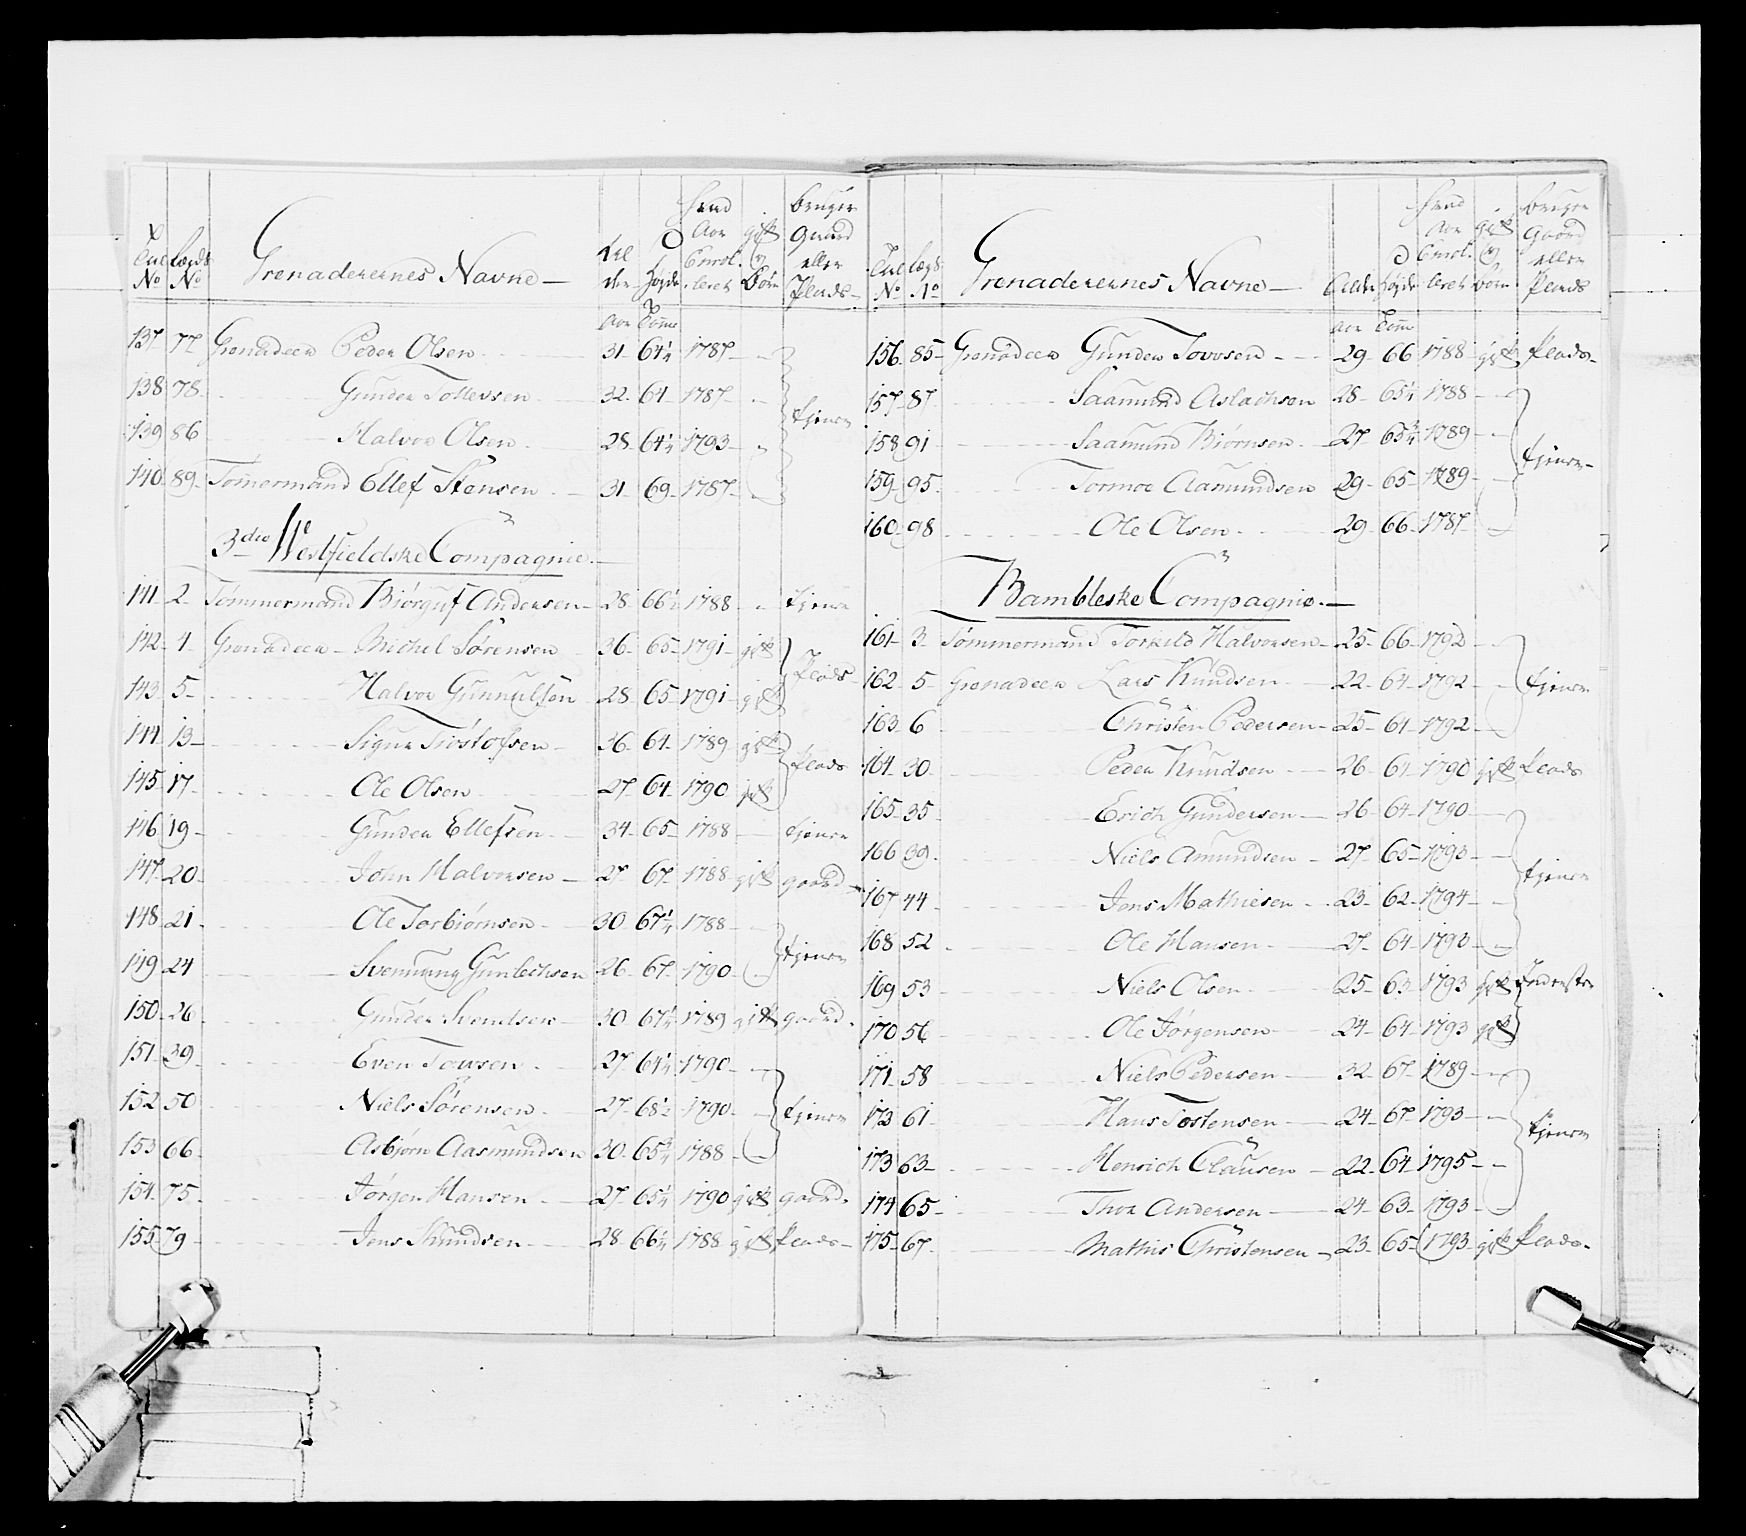 No No Grenaderernes Navne — Høyde gift Børn bruger Gaard eller Plads
Aar Tom̄e
137 77 Grenadeer Peder Olsen 31 64¼ 1787
138 78 Gunder Tollevsen 32 64 1787
139 86 Halvor Olsen 28 64¼ 1793 tjener
140 89 Tømermand Ellef Stensen 31 69 1787
3die Westfieldske Compagnie
141 2 Tømmermand Biørguf Andersen 28 66½ 1788 tjener
142 4 Grenadeer Michel Sørensen 36 65 1791 gift
143 5 Halvor Gunnulfsen 28 65 1791 gift Plads
144 13 Sigur Tiostofsen 36 64 1789 gift
145 17 Ole Olsen 27 64 1790 gift Plads
146 19 Gunder Ellefsen 34 65 1788 tjener
147 20 John Halvorsen 27 67 1788 gift gaard
148 21 Ole Torbiørnsen 30 67¼ 1788
149 24 Svennung Gunleichsen 26 67 1790 tjener
150 26 Gunder Svendsen 30 67¼ 1789 gift gaard
151 39 Even Tovsen 27 64½ 1790
152 50 Niels Sørensen 27 68½ 1790 tjener
153 66 Asbjørn Aasmundsen 30 65¾ 1788
154 75 Jørgen Hansen 27 65¼ 1790 gift gaard
155 79 Jens Knudsen 28 66¼ 1788 gift Plads
No No Grenaderernes Navne — Alder Høyde gift Børn bruger Gaard eller Plads
Aar Tom̄e
156 85 Grenadeer Gunder Tovosen 29 66 1788 gift Plads
157 87 Saamund Aslachsen 28 65¼ 1788
158 91 Saamund Biørnsen 27 65¾ 1789
159 95 Tormoe Aamundsen 29 65 1789 tjener
160 98 Ole Olsen 29 66 1787
Bambleske Compagnie
161 3 Tømmermand Torkild Halvorsen 25 66 1792
162 5 Grenadeer Lars Knudsen 22 64 1792 tjener
163 6 Christen Pedersen 25 61 1792
164 30 Peder Knudsen 26 61 1790 gift Plads
165 35 Erich Gundersen 26 64 1790
166 39 Niels Amundsen 27 65 1793
167 44 Jens Mathiesen 23 62 1794 tjener
168 52 Ole Hansen 27 64 1793
169 53 Niels Olsen 25 63 1793 gift Inderster
170 56 Ole Jørgensen 24 64 1793 gift
171 58 Niels Pedersen 32 67 1789
173 61 Hans Tostensen 24 67 1793 tjener
173 63 Henrich Clausen 22 64 1795
174 65 Thor Andersen 24 63 1793
175 67 Mathis Christensen 23 65 1793 gift Plads